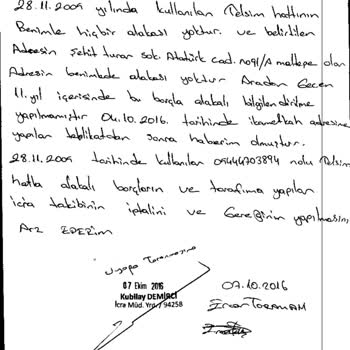 28.11.2009 yılında kullanılan Telsim hattının
Benimle hiçbir alakası yoktur. ve belirtilen
Adresin şehit turan sok. Atatürk cad. no91/A maltepe olan
Adresin benimlede alakası yoktur Aradan Geçen
11.yıl içerisinde bu borçla alakalı bilgilendirilme
yapılmamıştır 04.10.2016. tarihinde ikametkah adresime
yapılan tebligattan sonra haberim olmuştur.
28.11.2009 tarihinde kullanılan 05444703894 nolu Telsim
hatla alakalı borçların ve tarafıma yapılan
icra takibinin iptalini ve Gereğinin yapılmasını
Arz EDERİM
Uyapa Taranmasına
07 Ekim 2016
Kubilay DEMİRCİ
İcra Müd. Yrd. 94258
07.10.2016